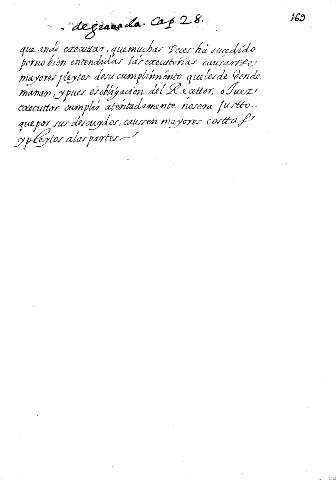 de granada. Cap. 28.
169
que an de executar, que muchas veces há sucedido
por no bien entendadas las executorias causarse
mayores pleytos de su cumplimiento que los de donde
manan, y pues es obligacion del Recettor, o Juez
executtor cumplir atentadamente no sera justto
que por sus descuydos, caussen mayores costtas
y pleytos a las partes